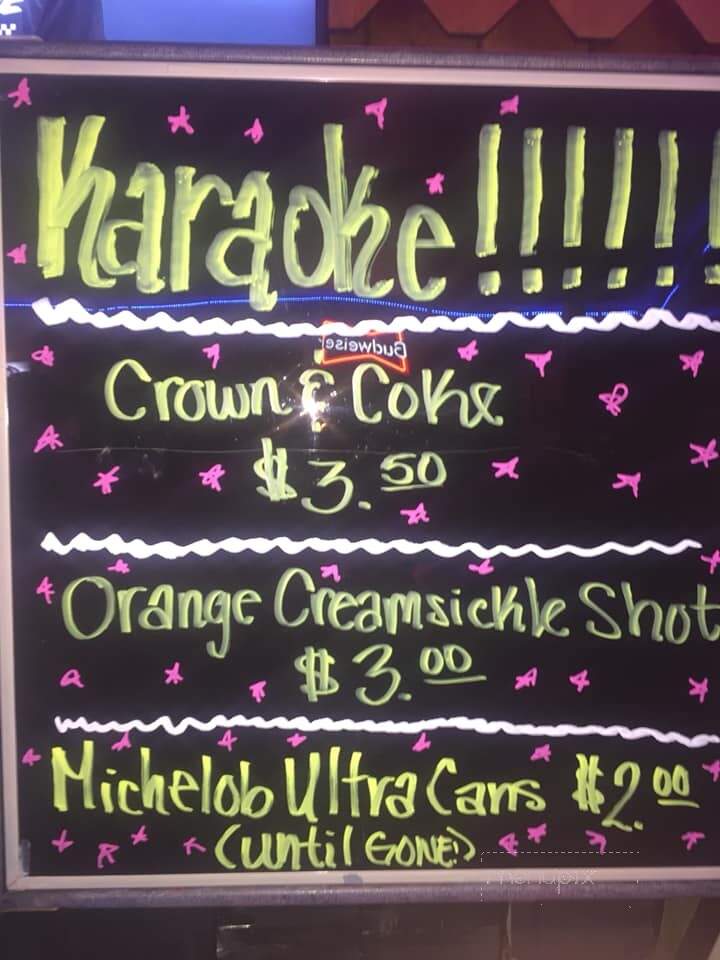 Karaoke!!!!!!
Budweise
Crown & Coke
$3.50
Orange Creamsickle Shot
$3.00
Michelob Ultra Cans $2.00
(until GONE!)
menupix